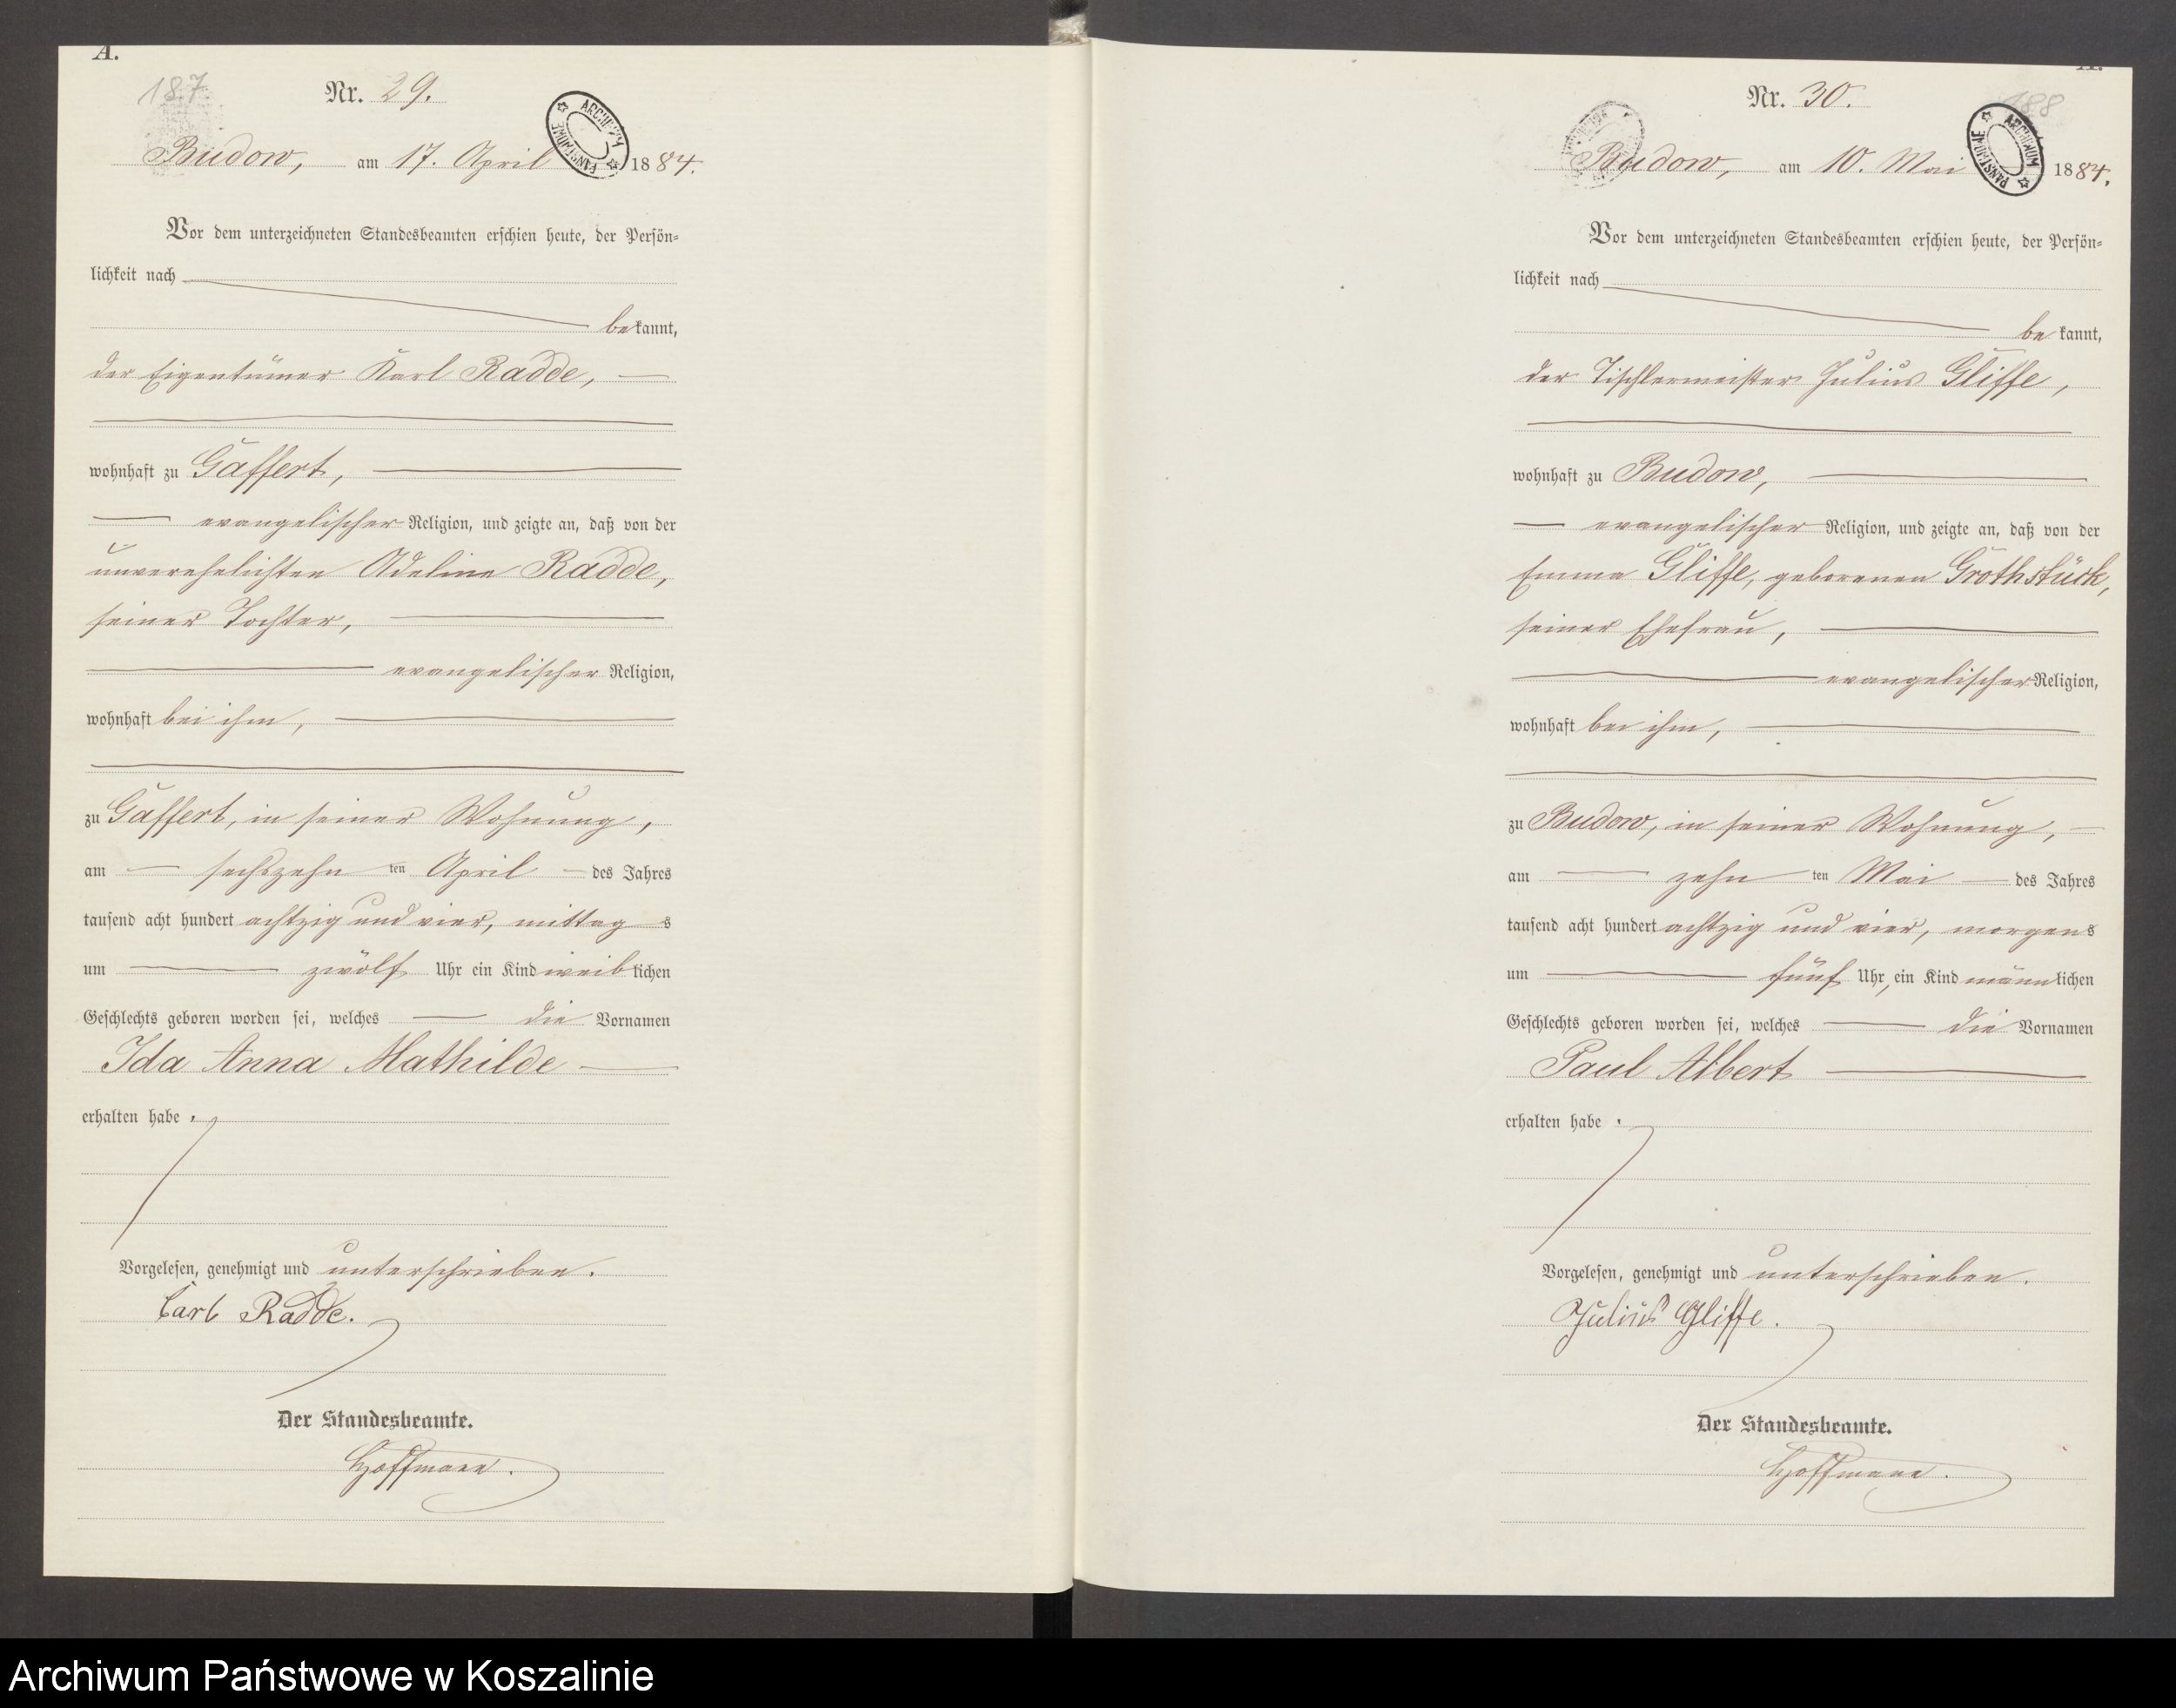 A.
187
Nr. 29.
Budow, am 17. April 1884.
ARCHIWUM PAŃSTWOWE
Vor dem unterzeichneten Standesbeamten erschien heute, der Persön=
lichkeit nach
bekannt,
der Eigentümer Karl Radde,
wohnhaft zu Gaffert,
evangelischer Religion, und zeigte an, daß von der
unverehelichten Adeline Radde,
seiner Tochter,
evangelischer Religion,
wohnhaft bei ihm,
zu Gaffert, in seiner Wohnung,
am sechszehn ten April des Jahres
tausend acht hundert achtzig und vier, mittags
um zwölf Uhr ein Kind weiblichen
Geschlechts geboren worden sei, welches die Vornamen
Ida Anna Mathilde
erhalten habe.
Vorgelesen, genehmigt und unterschrieben.
Carl Radde.
Der Standesbeamte.
Hoffmann.
A.
188
Nr. 30.
Budow, am 10. Mai 1884.
ARCHIWUM PAŃSTWOWE
Vor dem unterzeichneten Standesbeamten erschien heute, der Persön=
lichkeit nach
bekannt,
der Tischlermeister Julius Gliffe,
wohnhaft zu Budow,
evangelischer Religion, und zeigte an, daß von der
Emma Gliffe, geborenen Grothstück,
seiner Ehefrau,
evangelischer Religion,
wohnhaft bei ihm,
zu Budow, in seiner Wohnung,
am zehn ten Mai des Jahres
tausend acht hundert achtzig und vier, morgens
um fünf Uhr, ein Kind männlichen
Geschlechts geboren worden sei, welches die Vornamen
Paul Albert
erhalten habe.
Vorgelesen, genehmigt und unterschrieben.
Julius Gliffe.
Der Standesbeamte.
Hoffmann.
Archiwum Państwowe w Koszalinie